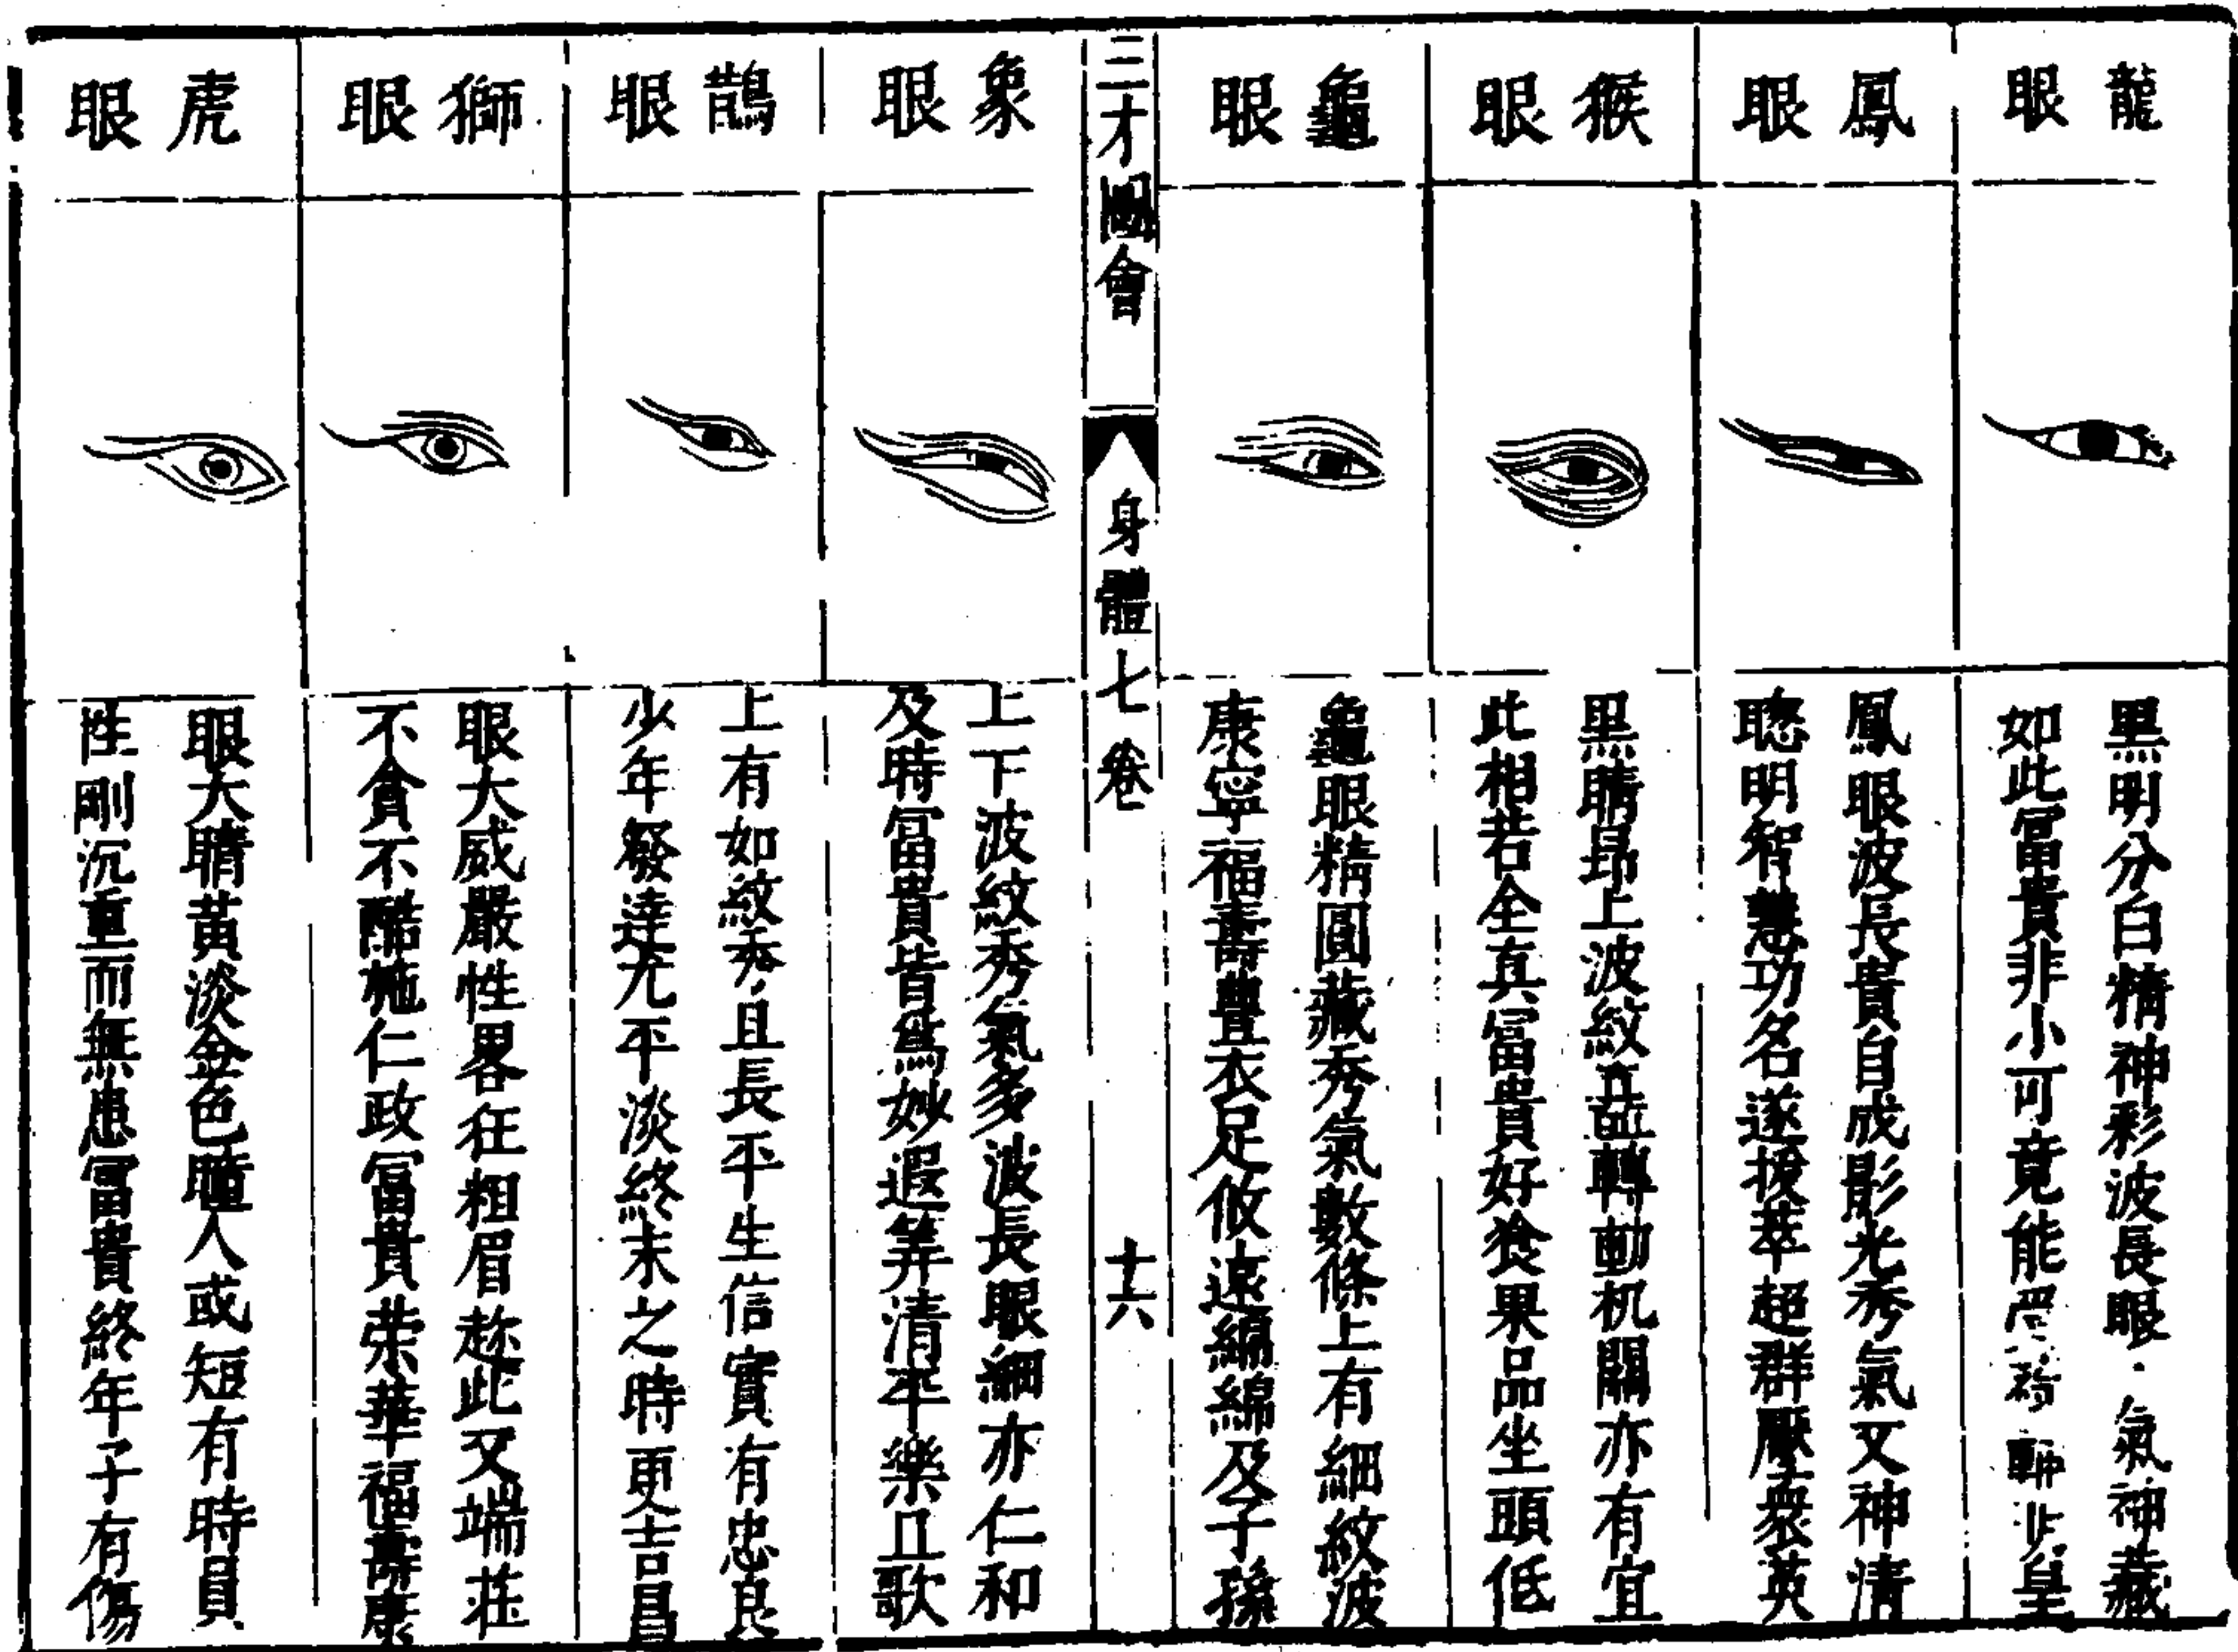 龍眼
黑明分白精神彩波長眼氣神藏
如此富貴非小可竟能受祿輔明皇
鳳眼
鳳眼波長貴自成影光秀氣又神清
聰明智慧功名遂拔萃超群壓衆英
猴眼
黑睛昂上波紋矗轉動机關亦有宜
此相若全真富貴好飡果品坐頭低
龜眼
龜眼精圓藏秀氣數條上有細紋波
康寧福壽豐衣足攸遠綿綿及子孫
三才圖會 身體七卷 十六
象眼
上下波紋秀氣多波長眼細亦仁和
及時富貴皆爲妙遐筭清平樂且歌
鵲眼
上有如紋秀且長平生信實有忠良
少年發達尤平淡終末之時更吉昌
獅眼
眼大威嚴性畧狂粗眉趂此又端莊
不貪不酷施仁政富貴荣華福壽康
虎眼
眼大睛黃淡金色瞳人或短有時員
性剛沉重而無患富貴終年子有傷